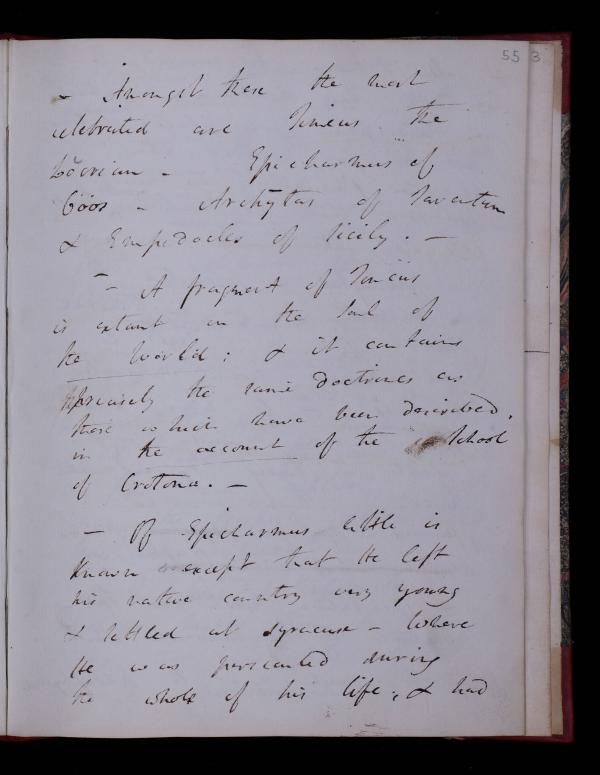 55 3
– Amongst these the most
celebrated are Timeus the
Locrian – Epicharmus of
Cöos – Archytas of Tarentum
& Empedocles of Sicily. –
– A fragment of Timeus
is extant on the Soul of
the World; & it contains
precisely the same doctrines as
those which have been described,
in the account of the School
of Crotona. –
– Of Epicharmus little is
known except that He left
his native country very young
& settled at Syracuse – Where
He was persecuted during
the whole of his life, & had